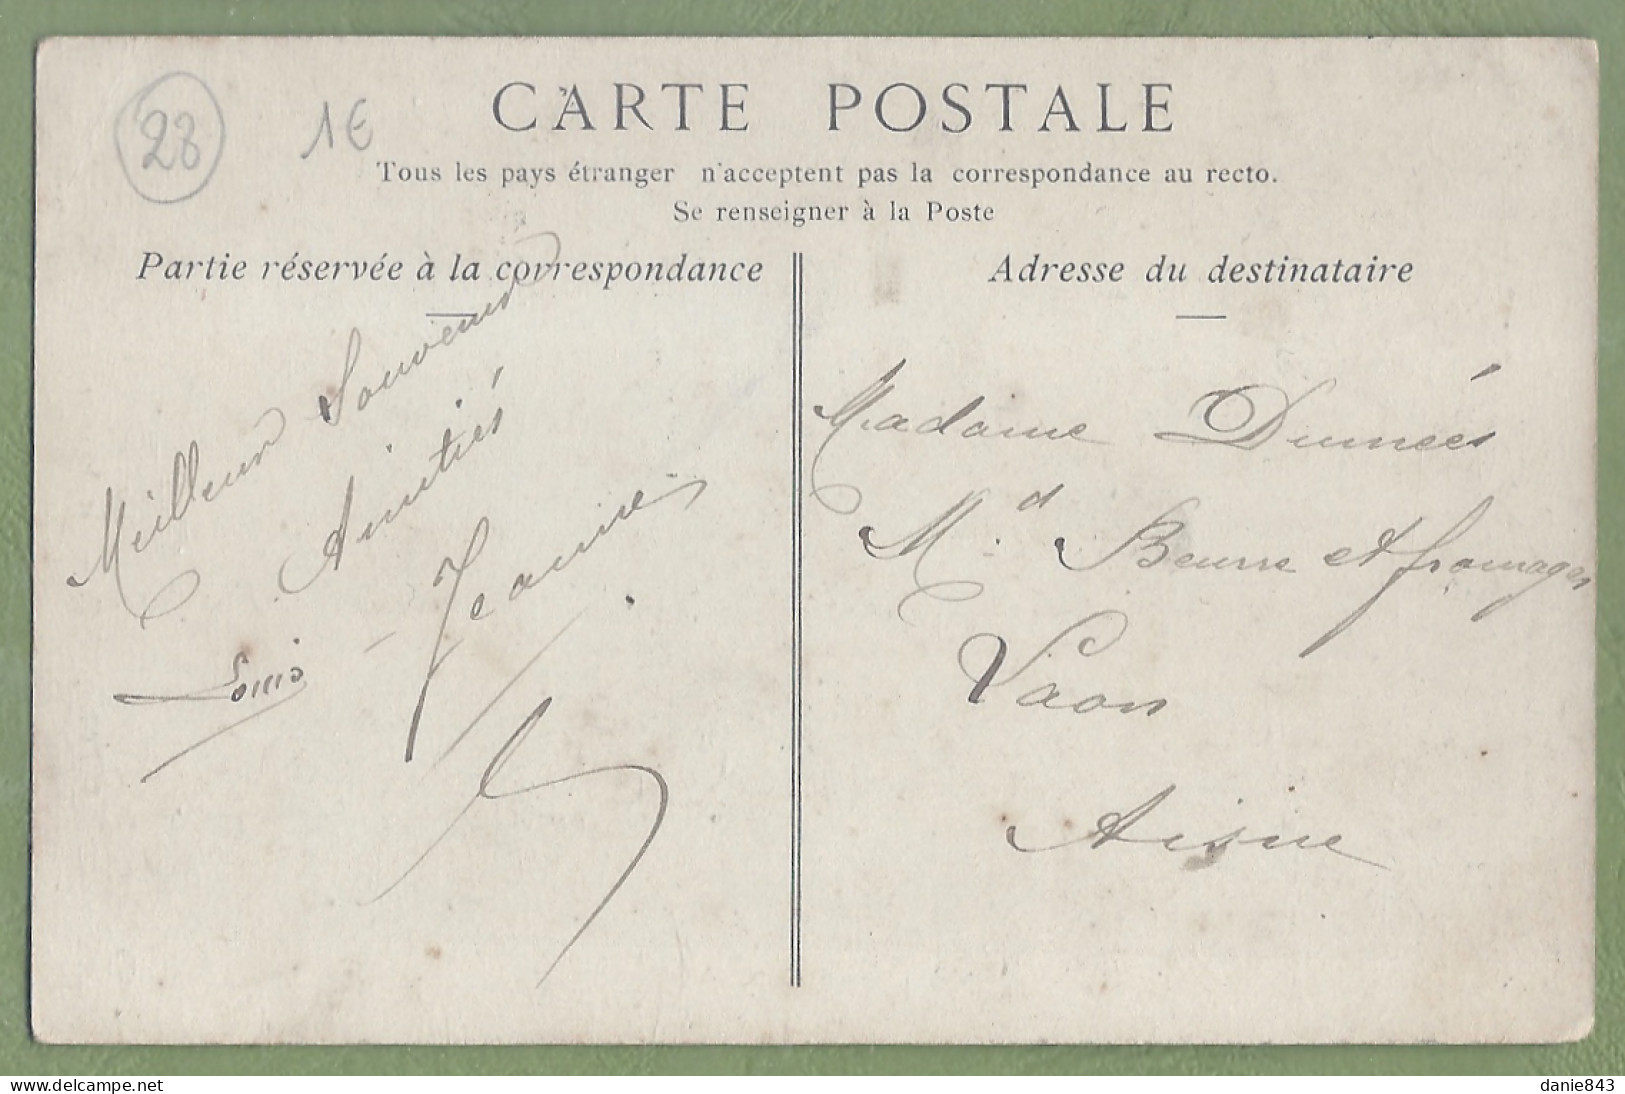 28
1€
CARTE POSTALE
Tous les pays étranger n'acceptent pas la correspondance au recto.
Se renseigner à la Poste
Partie réservée à la correspondance
Meilleur Souvenir
Amitiés
Louis - Jeanne
Adresse du destinataire
Madame Dumées
Md. Beurre et fromages
Laon
Aisne
www.delcampe.net
danie843